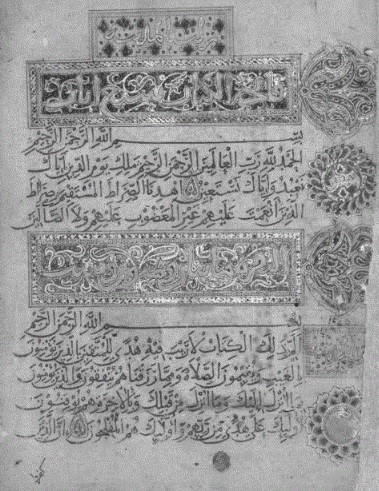 فاتحة الكتاب سبع ايات
بسم الله الرحمن الرحيم
الحمد لله رب العالمين الرحمن الرحيم ملك يوم الدين اياك
نعبد واياك نستعين اهدنا الصراط المستقيم صراط
الذين انعمت عليهم غير المغضوب عليهم ولا الضالين
بسم الله الرحمن الرحيم
الم ذلك الكتاب لا ريب فيه هدى للمتقين الذين يؤمنون
بالغيب ويقيمون الصلاة ومما رزقناهم ينفقون والذين يؤمنون
بما انزل اليك وما انزل من قبلك وبالاخرة هم يوقنون
اوليك على هدى من ربهم واوليك هم المفلحون ان الذين